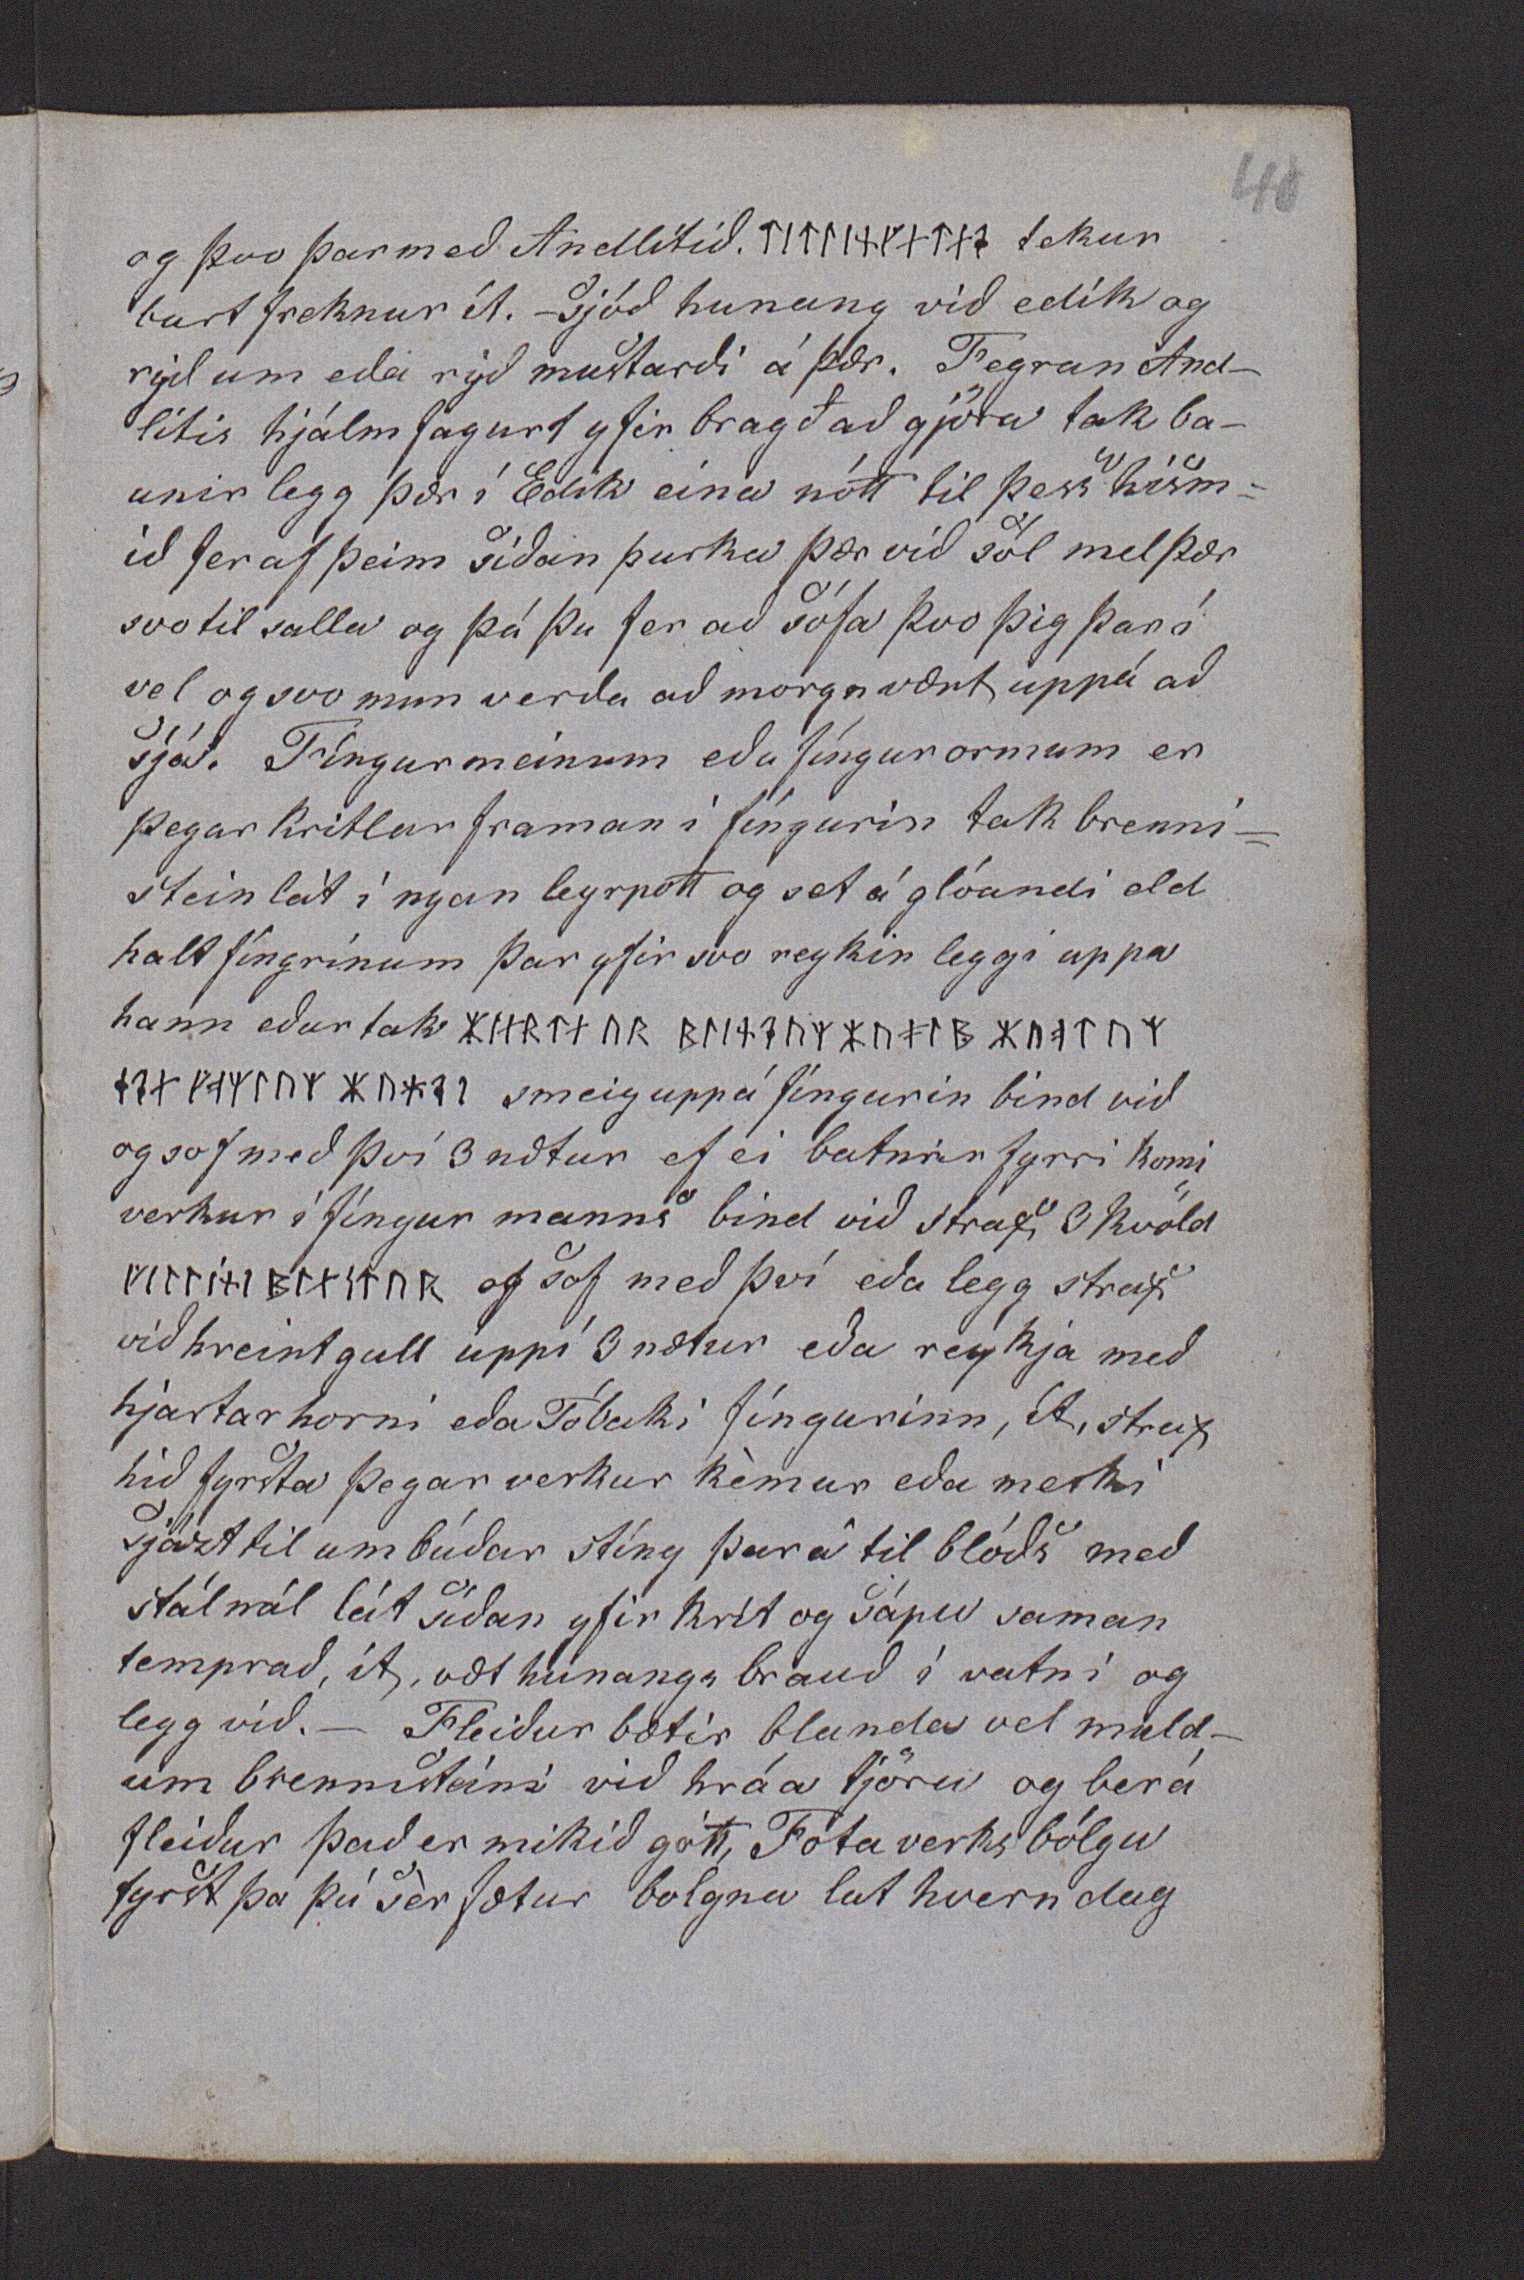 40
og þvo þarmeð Andlitið. ᛏᛁᛏᛚᛁᚾᚠᚾᛏᚾ tekur
burt freknur ít. – Sjóð hunang við edik og
rýd um eða rýð mustarði á þær. Fegran And-
litis hjálm fagurt yfir bragð að gjöra tak ba-
unir legg þær í Edik eina nótt til þess hism=
ið fer af þeim síðan þurka þær við sól mel þær
svo til salla og þá þu fer að sófa þvo þig þar í
vel og svo mun verða að morgn vænt uppá að
sjá. Fíngurmeinum eða fíngurormum er
þegar kritlar framan í fíngurin tak brenni=
stein lát í nyan leyrpott og set á glóandi eld
halt fíngrinum þar yfir svo reykin leggi uppa
hann eður tak
smeig uppá fíngurin bind við
og sof með því 3 nætur ef ei batnar fyrri komi
verkur í fíngur manns bind við strax 3 kvöld
ᚠᛁᛚᛚᛁᚾᛁ ᛒᛚᚾᛋᛏᚢᚱ og sof með því eða legg strax
við hreint gull uppí 3 nætur eða reykja með
hjartarhorni eða Tóbaki fíngurinn, ít, strax
hið fyrsta þegar verkur kèmur eða merki
sjázt til umbúðar stíng þar á til blóðs með
stálnál lát síðan yfir krít og sápu saman
temprað, ít, væt hunangs brauð í vatni og
legg við. – Fleiður bætir blanda vel muld-
um brennisteini við hráa tjöru og ber á
fleiður það er mikið gótt, Fóta verks bólgu
fyrst þa þú sèr fætur bolgna lat hvern dag